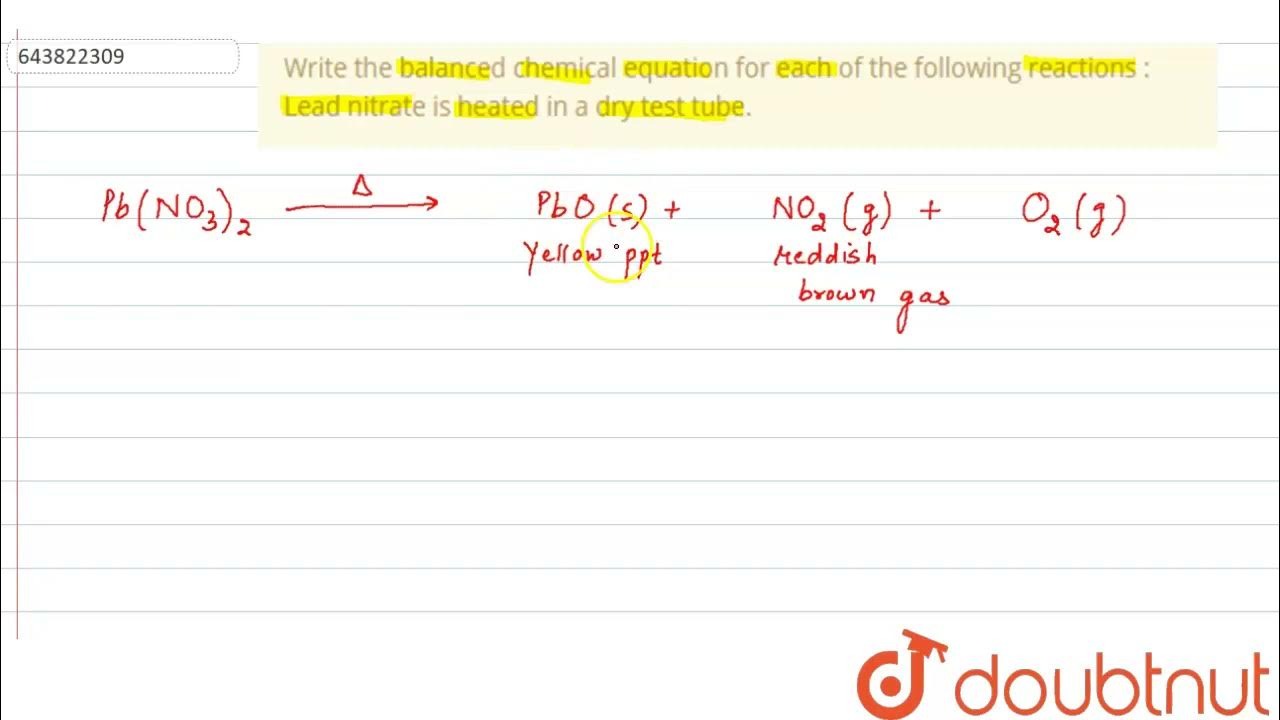 643822309
Write the balanced chemical equation for each of the following reactions :
Lead nitrate is heated in a dry test tube.
Pb(NO₃)₂ —Δ→ PbO(s) + NO₂(g) + O₂(g)
Yellow ppt reddish
brown gas
doubtnut